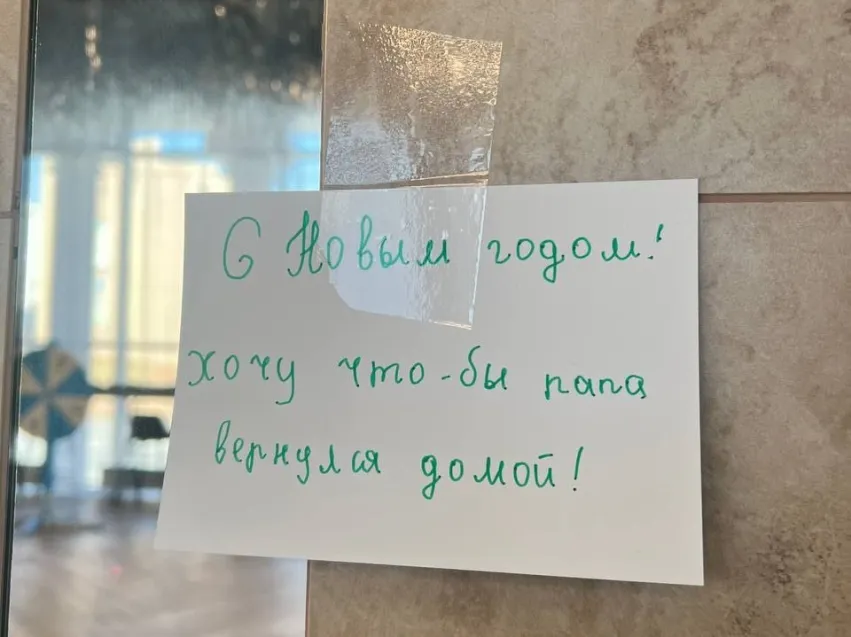 С Новым годом!
хочу что-бы папа
вернулся домой!